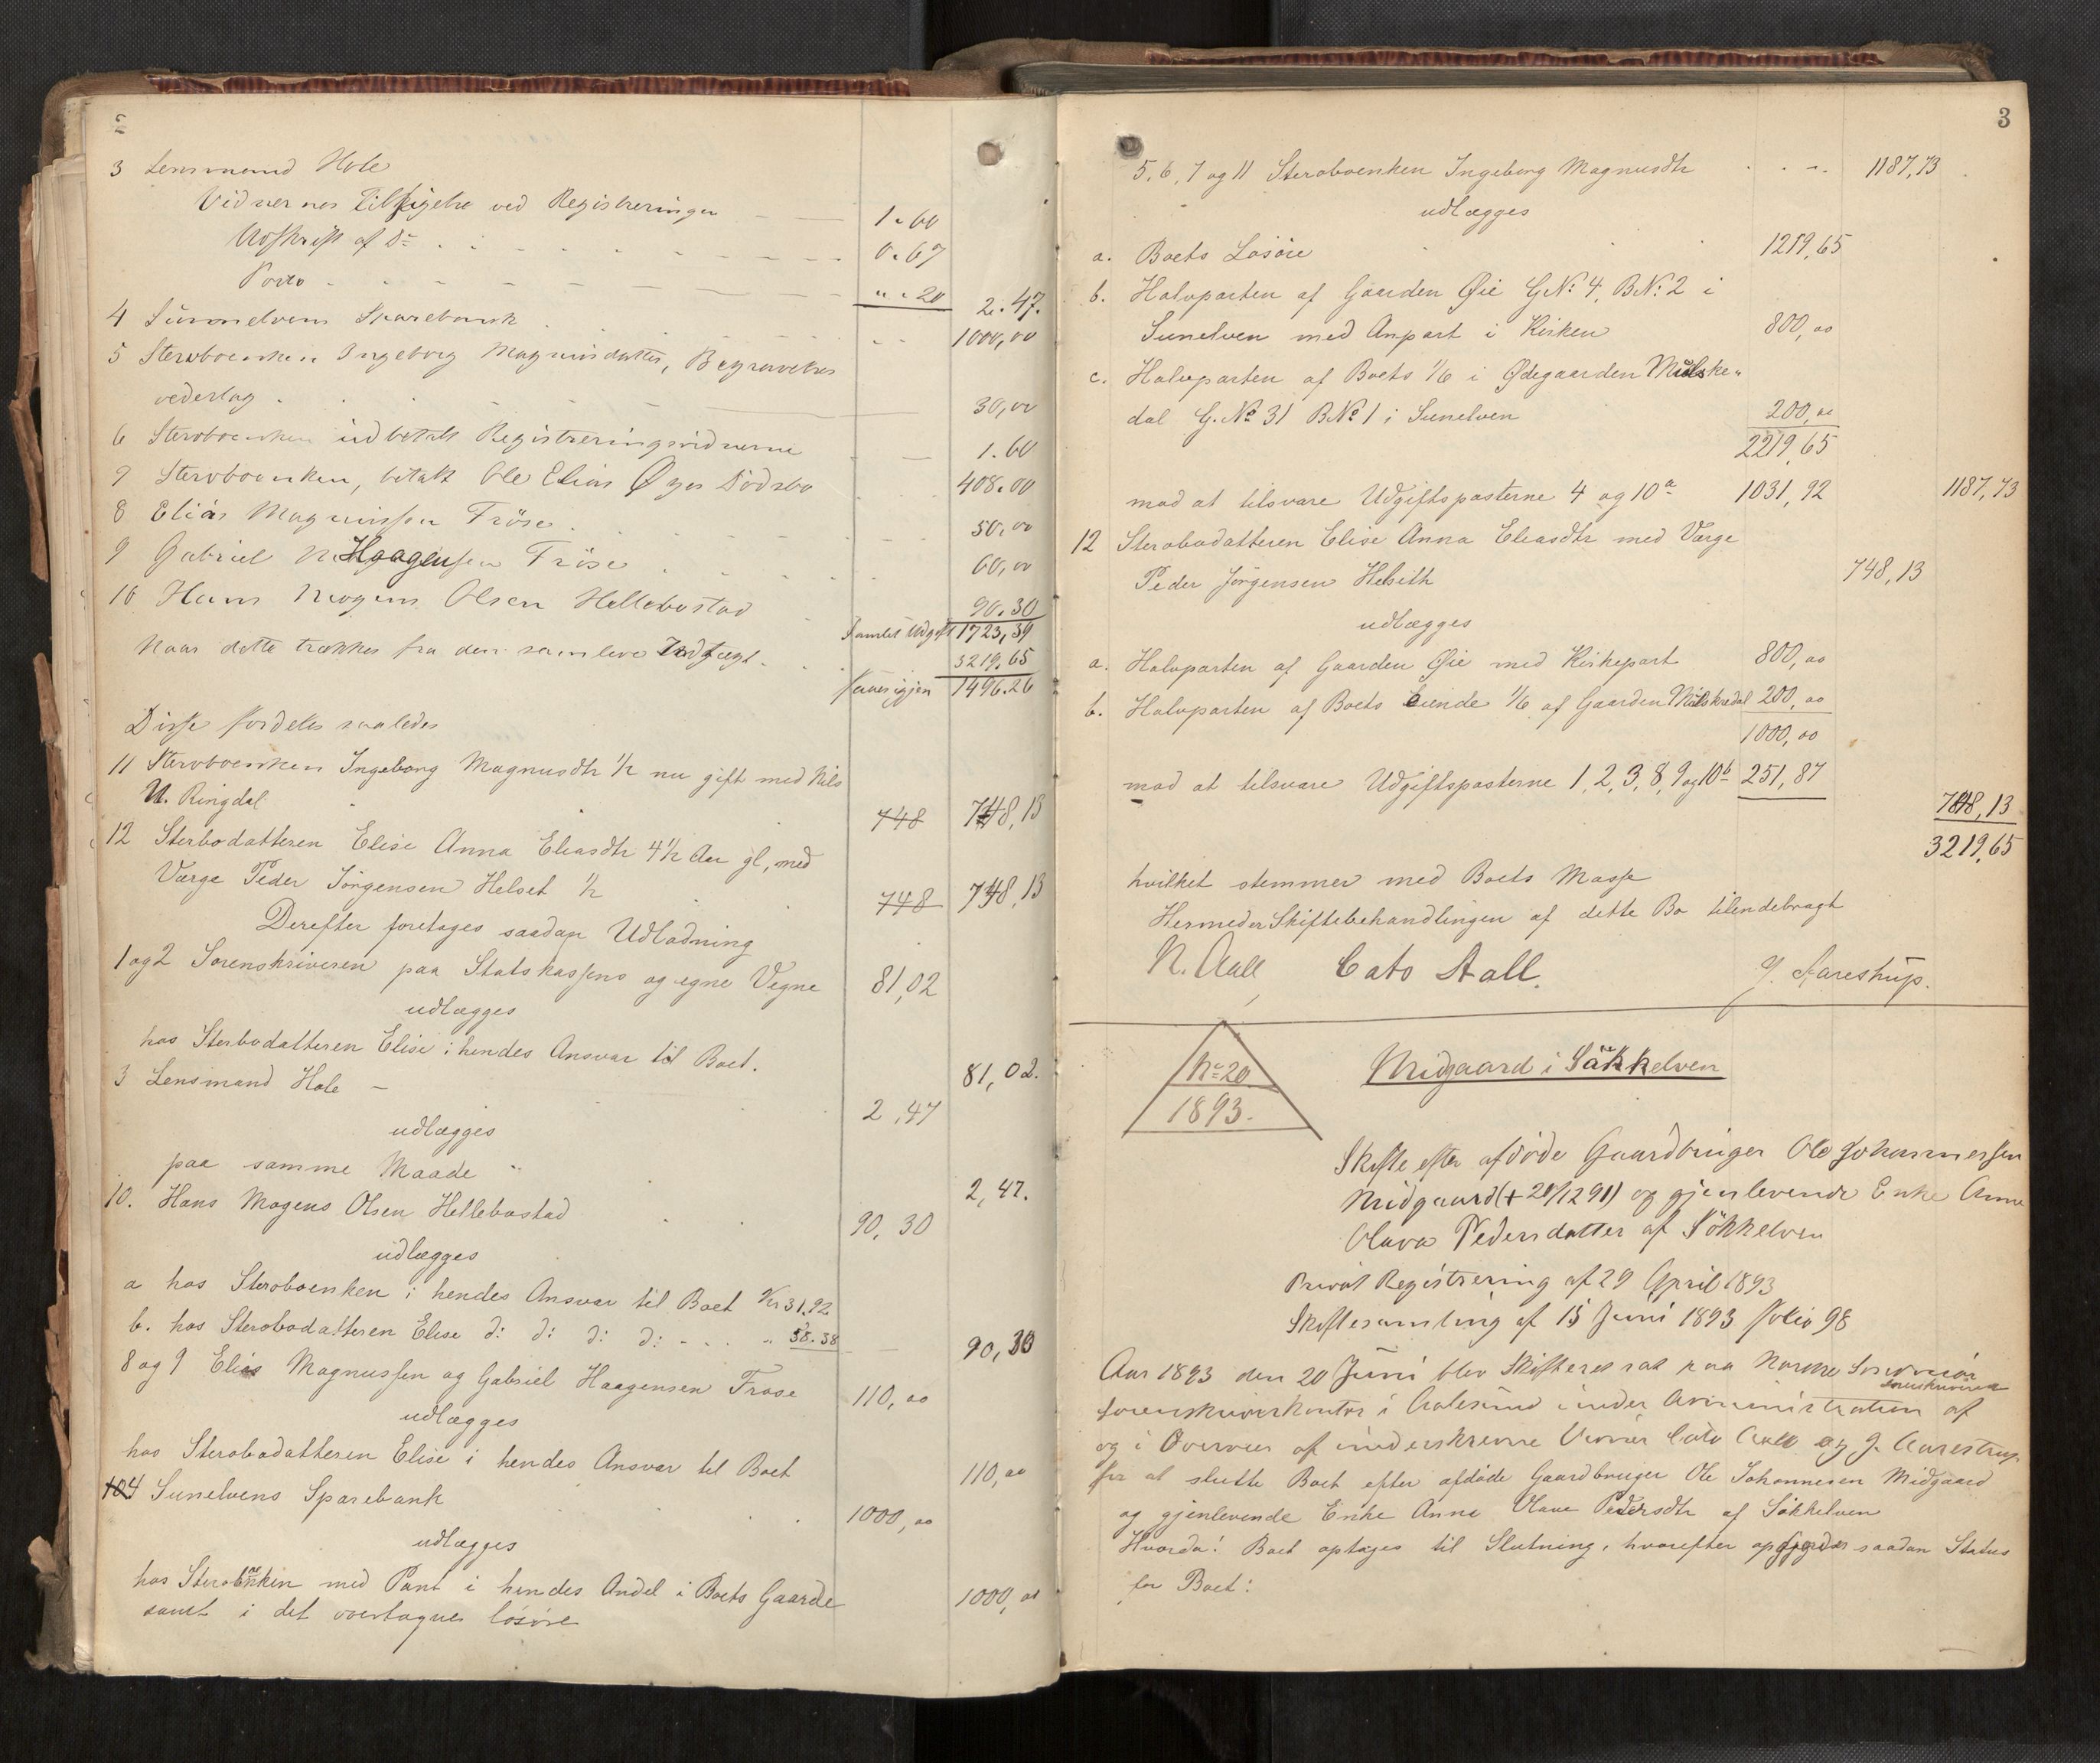 2
3 Lensmand Hole
Vidnernes Tilsigelse ved Registreringen 1.60
Udskrift af Do 0.67
Porto " . 20 2.47.
4 Sunnelvens Sparebank 1000,00
5 Sterboenken Ingeborg Magnusdatter, Begravelses
vederlag 30,00
6 Sterboenken udbetalt Registreringsvidnerne 1.60
7 Sterboenken, betalt Ole Elias Øyes Dödsbo 408.00
8 Elias Magnussen Fröse 50,00
9 Gabriel Haagensen Fröse 60,00
10 Hans Mogens Olsen Hellebostad 90.30
Samlet Udgift 1723,39
Naar dette trækkes fra den samlede Indtægt 3219.65
haves igjen 1496.26
Disse fordeles saaledes
11 Sterboenken Ingeborg Magnusdtr 1/2 nu gift med Nils
U. Ringdal 748 748,13
12 Sterbodatteren Elise Anna Eliasdtr 4 1/2 Aar gl, med
Værge Peder Jörgensen Helset 1/2 748 748,13
Derefter foretages saadan Udlodning
1 og 2 Sorenskriveren paa Statskassens og egne Vegne 81,02
udlægges
hos Sterbodatteren Elise i hendes Ansvar til Boet. 81,02.
3 Lensmand Hole – 2,47
udlægges
paa samme Maade " 2,47.
10. Hans Mogens Olsen Hellebostad 90,30
udlægges
a hos Sterboenken i hendes Ansvar til Boet Kr 31.92
b. hos Sterbodatteren Elise d: d: d: d: - " 58.38 90,30
8 og 9 Elias Magnussen og Gabriel Haagensen Frøse 110,00
udlægges
hos Sterbodatteren Elise i hendes Ansvar til Boet 110,00
4 Sunelvens Sparebank 1000,00
udlægges
hos Sterboenken med Pant i hendes Andel i Boets Gaarde
samt i det overtagne lösöre 1000,00
3
5, 6, 7 og 11 Sterboenken Ingeborg Magnusdtr 1187,73
udlægges
a. Boets Løsøre 1219,65
b. Halvparten af Gaarden Øie G.No 4, B.No 2 i
Sunelven med Anpart i Kirken 800,00
c. Halvparten af Boets 1/6 i Ødegaarden Mulske"
dal G.No 31 B.No 1 i Sunelven 200,00
2219,65
mod at tilsvare Udgiftsposterne 4 og 10a 1031,92 1187,73
12 Sterbodatteren Elise Anna Eliasdtr med Værge
Peder Jørgensen Helsith 748,13
udlægges
a. Halvparten af Gaarden Øie med Kirkepart 800,00
b. Halvparten af Boets Eiende 1/6 af Gaarden Mulskredal 200,00
1000,00
mod at tilsvare Udgiftsposterne 1, 2, 3, 8, 9 og 10b 251,87
748,13
3219,65
hvilket stemmer med Boets Masse
Hermed er Skiftebehandlingen af dette Bo tilendebragt
N. Aall Cato Aall. J. Aarestrup.
No 20
1893.
Midgaard i Søkkelven
Skifte efter afdöde Gaardbruger Ole Johannessen
Midgaard (+ 20/12 91) og gjenlevende Enke Anne
Olava Pedersdatter af Sökkelven
Privat Registrering af 29 April 1893
Skiftesamling af 15 Juni 1893 folio 98
Aar 1893 den 20 Juni blev Skifteret sat paa Nordre Söndmör
sorenskriverkontor i Aalesund under Administration af sorenskriveren
og i Overvær af underskrevne Vidner Cato Aall og J. Aarestrup
for at slutte Boet efter afdøde Gaardbruger Ole Johannesen Midgaard
og gjenlevende Enke Anne Olava Pedersdtr af Søkkelven
Hvorda: Boet optages til Slutning, hvorefter opgjordes saadan Status
for Boet: